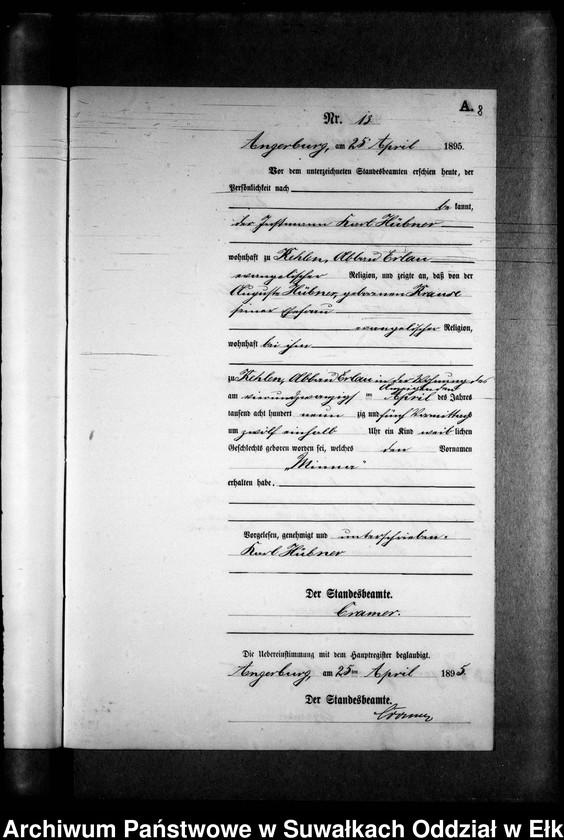 A.
8
Nr. 13
Angerburg, am 25 April 1895.
Vor dem unterzeichneten Standesbeamten erschien heute, der
Persönlichkeit nach
be kannt,
der Instmann Karl Hübner
wohnhaft zu Kehlen, Abbau Erlau
evangelischer Religion, und zeigte an, daß von der
Auguste Hübner, geborenen Krause
seiner Ehefrau
evangelischer Religion,
wohnhaft bei ihm
zu Kehlen, Abbau Erlau in der Wohnung des
Anzeigenden
am vierundzwanzigsten April des Jahres
tausend acht hundert neun zig und fünf Vormittags
um zwölf einhalb Uhr ein Kind weib lichen
Geschlechts geboren worden sei, welches den Vornamen
„Minna“
erhalten habe.
Vorgelesen, genehmigt und unterschrieben.
Karl Hübner
Der Standesbeamte.
Cramer.
Die Uebereinstimmung mit dem Hauptregister beglaubigt.
Angerburg, am 25ten April 1895.
Der Standesbeamte.
Cramer
Archiwum Państwowe w Suwałkach Oddział w Ełk